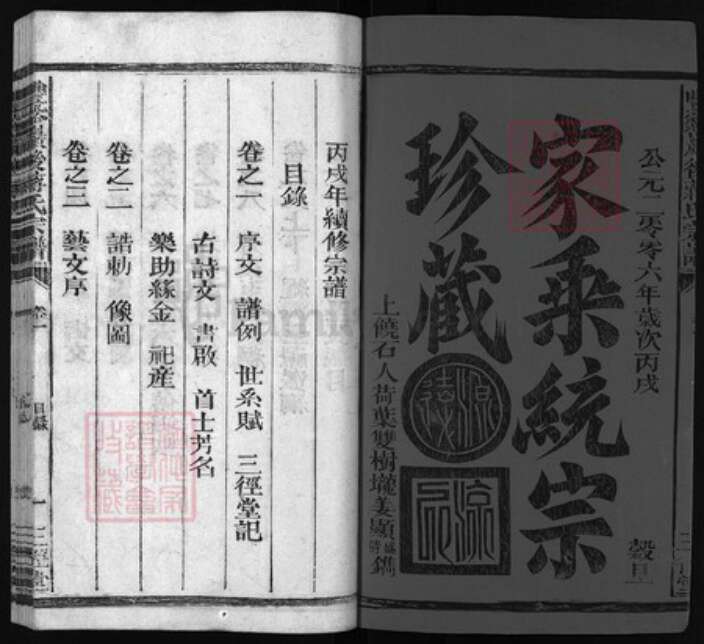 公元二零零六年歲次丙戌
穀旦
家乘統宗
珍藏
源遠
流長
上饒石人荷葉雙樹壠姜顯鐫
丙戌年續修宗譜
目錄
卷之一 序文 譜例 世系賦 三徑堂記
古詩文 書啟 首士芳名
樂助緣金 祀產
卷之二 誥勅 像圖
卷之三 藝文序
氏宗譜
卷一
目錄
一
三徑堂